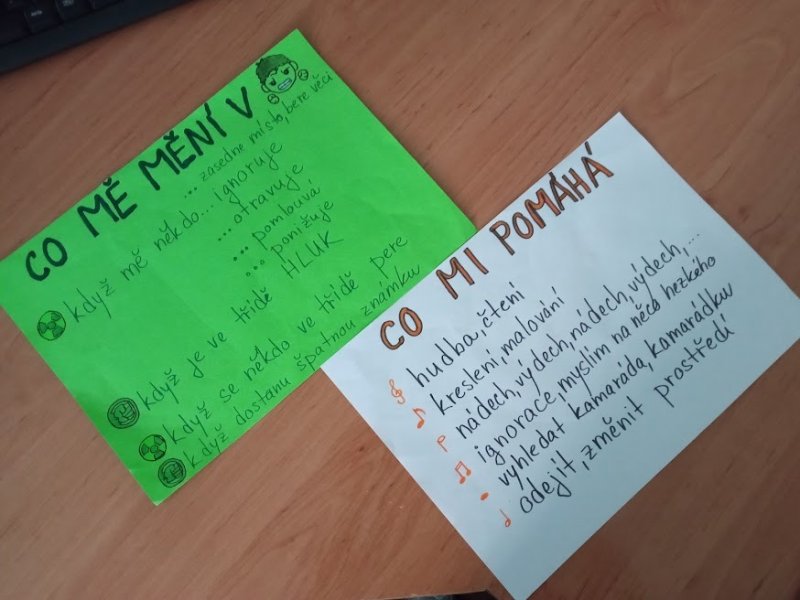 CO MĚ MĚNÍ V
... zasedne místo, bere věci
když mě někdo... ignoruje
... otravuje
... pomlouvá
... ponižuje
když je ve třídě HLUK
když se někdo ve třídě pere
když dostanu špatnou známku
CO MI POMÁHÁ
hudba, čtení
kreslení, malování
nádech, výdech, nádech, výdech,...
ignorace, myslím na něco hezkého
vyhledat kamaráda, kamarádku
odejít, změnit prostředí